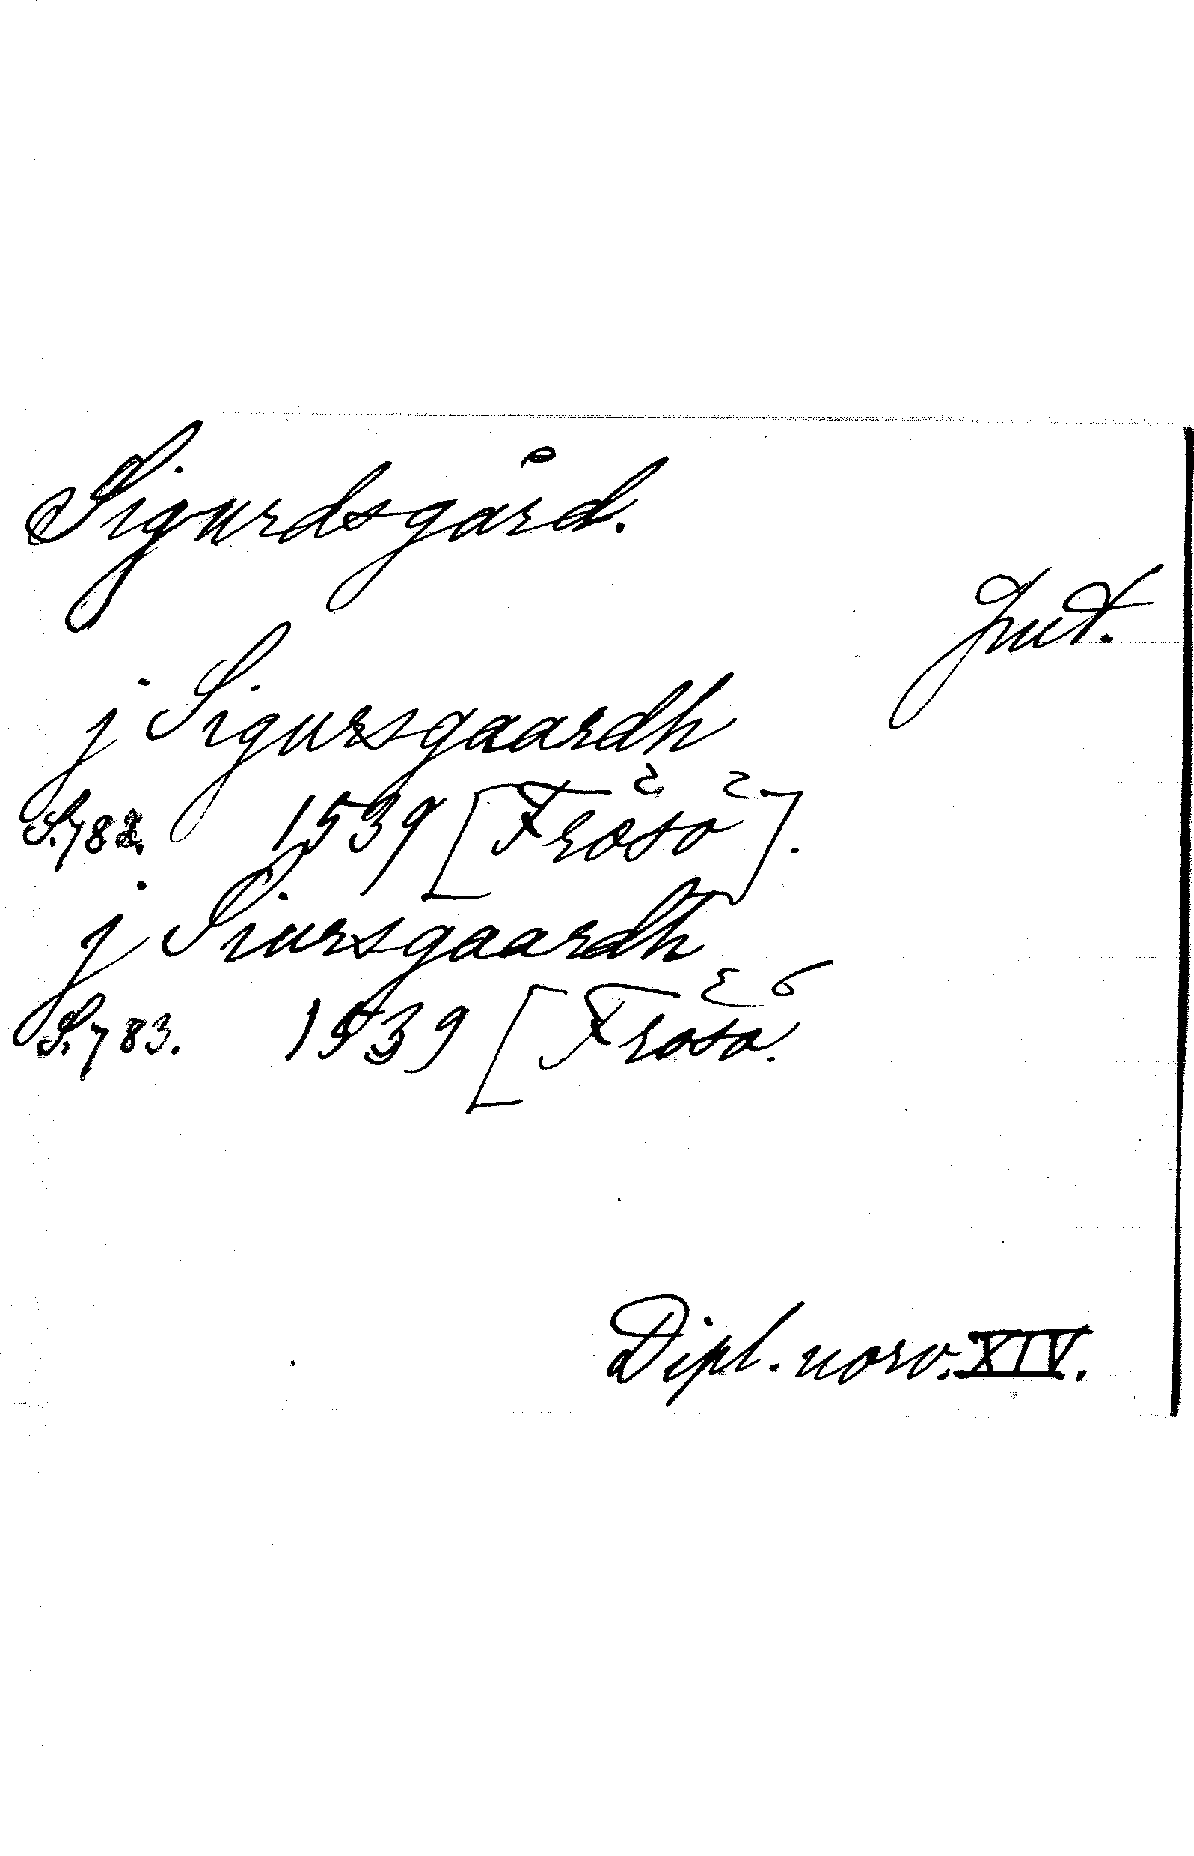 Sigurdsgård.
Jmt.
j Sigursgaardh
S. 782. 1539 [Frösö].
j Siursgaardh
S. 783. 1539 [Frösö.
Dipl. norv. XIV.